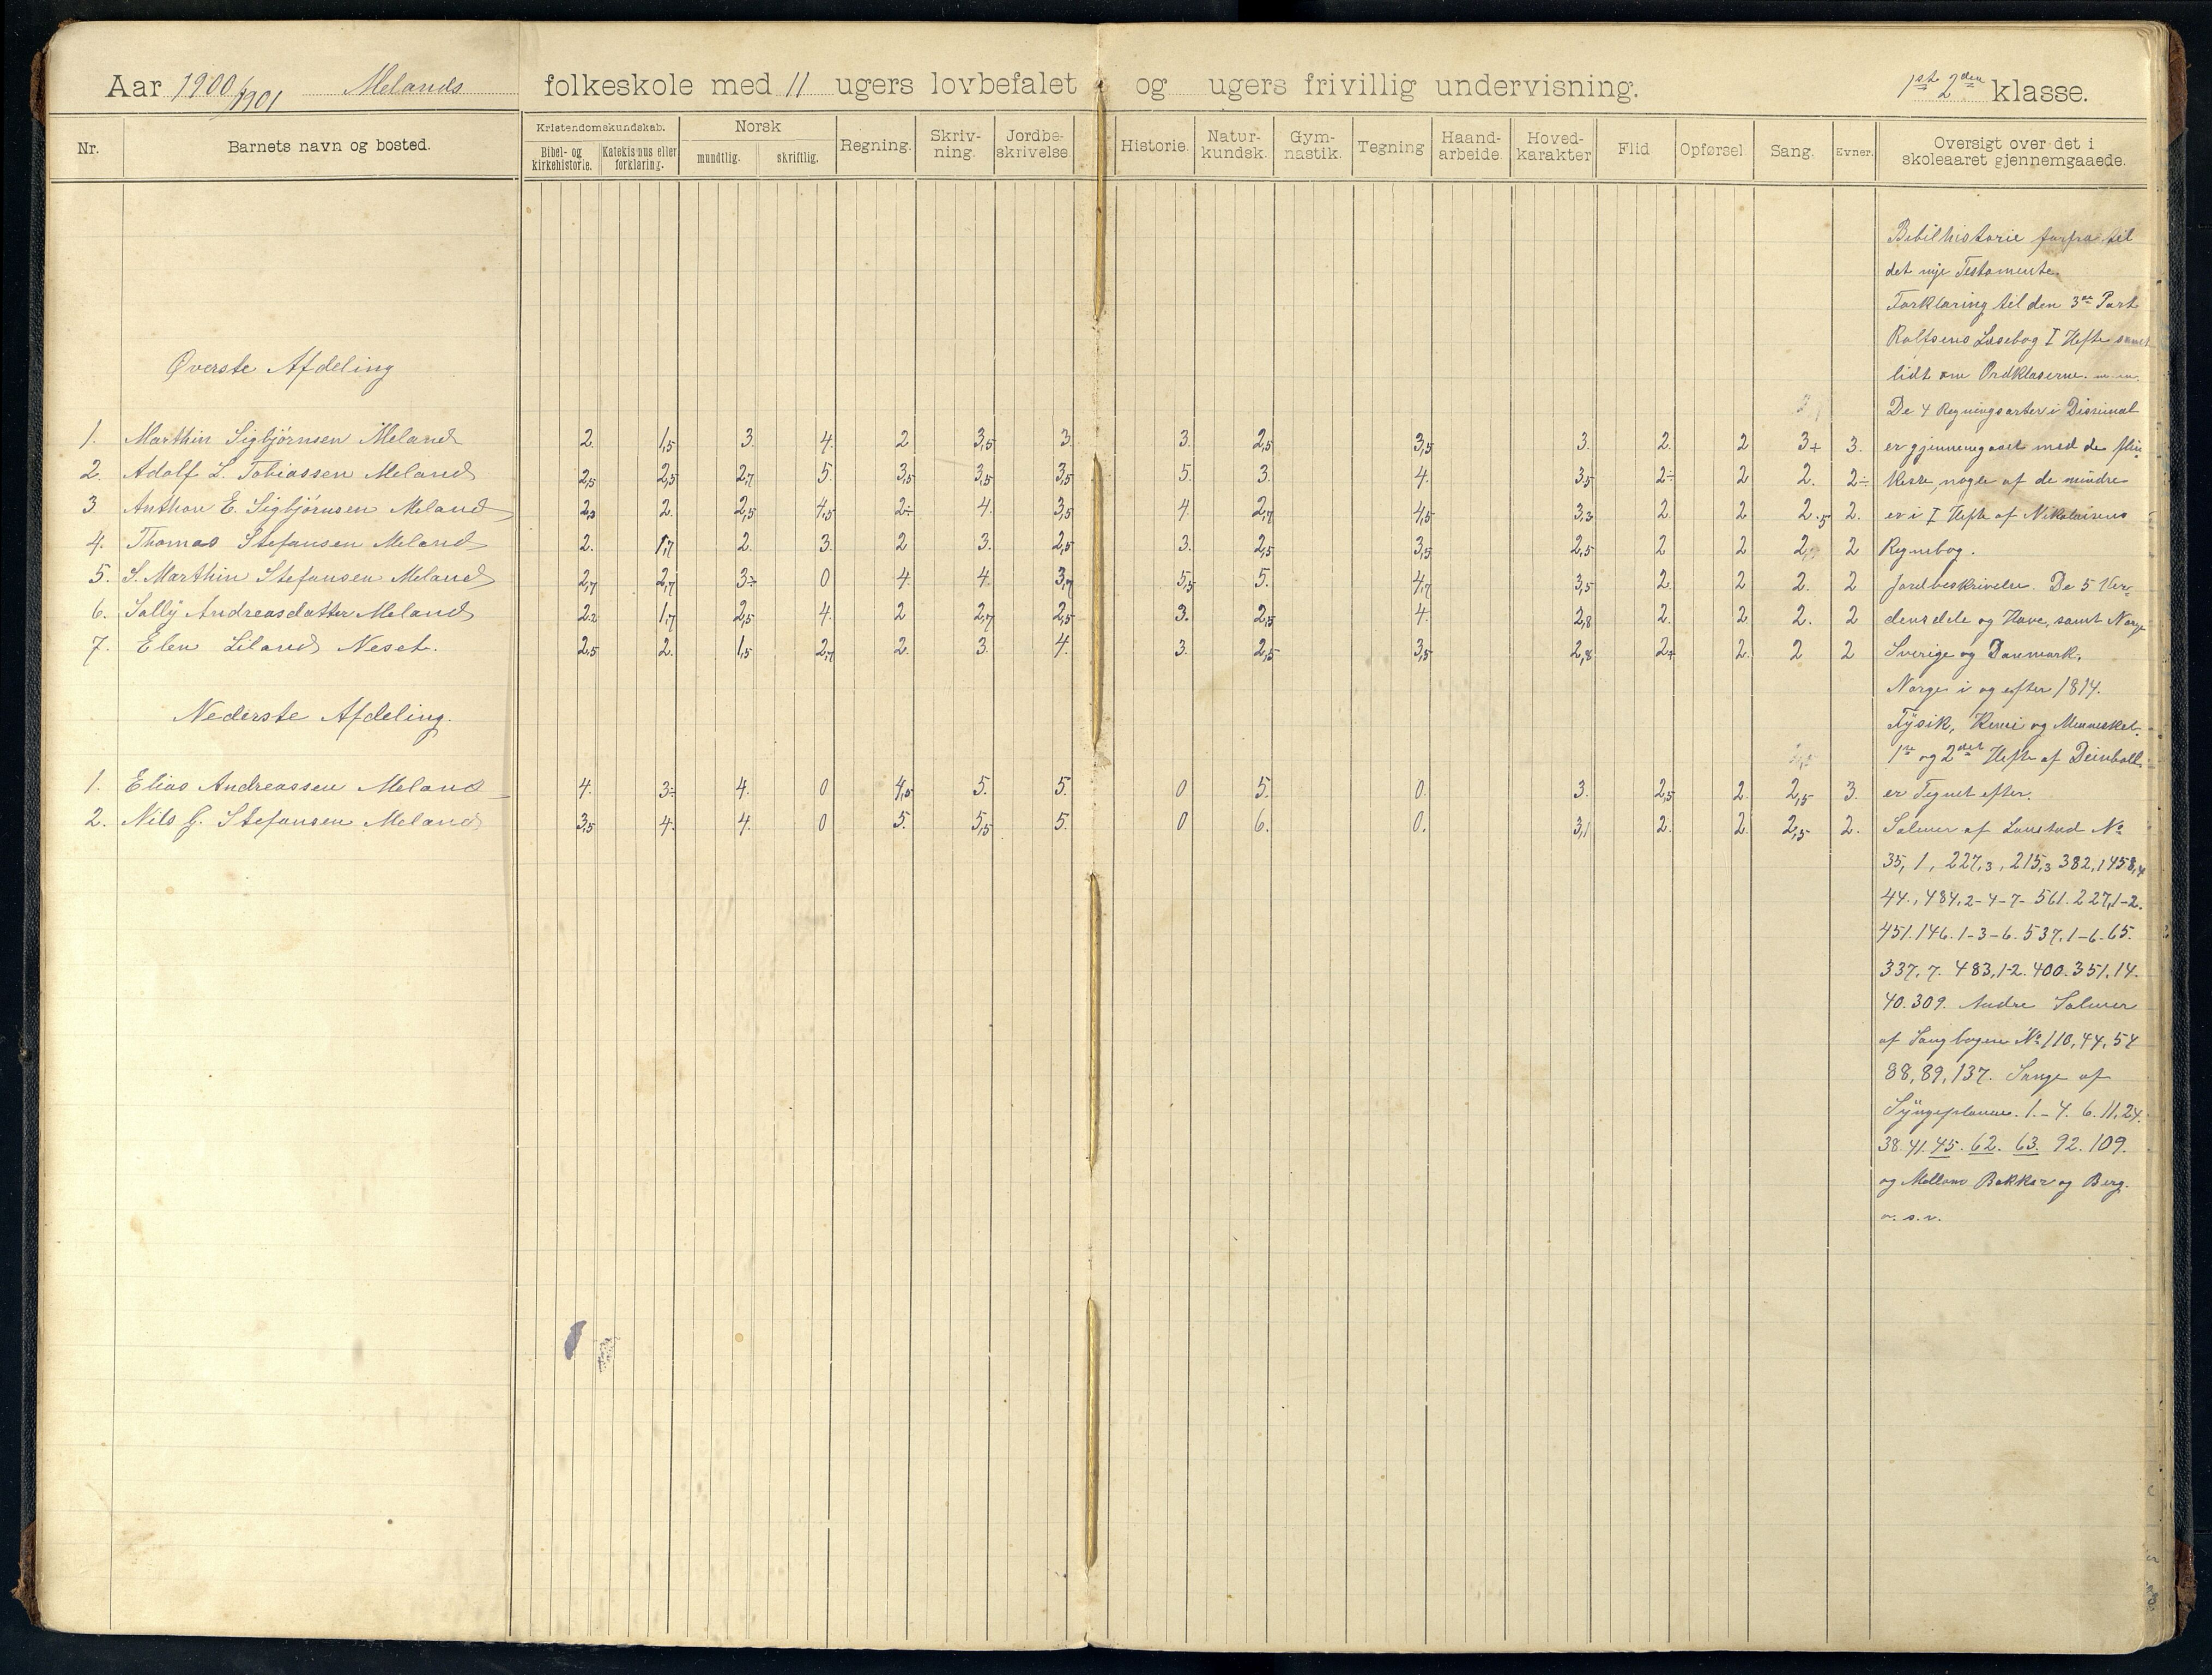 Aar 1900/1901 Melands folkeskole med 11 ugers lovbefalet og ugers frivillig undervisning. 1ste 2den klasse.
Nr. Barnets navn og bosted. Kristendomskundskab. Bibel- og kirkehistorie. Katekismus eller forklaring. Norsk mundtlig. skriftlig. Regning. Skriv-ning. Jordbe-skrivelse. Historie. Natur-kundsk. Gym-nastik. Tegning Haand-arbeide. Hoved-karakter Flid Opførsel Sang. Evner. Oversigt over det i skoleaaret gjennemgaaede.
Øverste Afdeling
1. Marthin Sigbjørnsen Meland 2. 1,5 3. 4. 2 3,5 3. 3. 2,5 3,5 3. 2. 2 3+ 3.
2. Adolf L. Tobiassen Meland 2,5 2,5 2,7 5. 3,5 3,5 3,5 5. 3. 4. 3,5 2÷ 2 2. 2÷
3. Anthon E. Sigbjørnsen Meland 2,3 2. 2,5 4,5 2÷ 4. 3,5 4. 2,7 4,5 3,3 2. 2 2.5 2.
4. Thomas Stefansen Meland 2. 1,7 2. 3. 2 3. 2,5 3. 2,5 3,5 2,5 2 2 2, 2
5. S. Marthin Stefansen Meland 2,7 2,7 3÷ 0 4. 4. 3,7 5,5 5. 4,7 3,5 2. 2 2. 2
6. Sally Andreasdatter Meland 2.2 1,7 2,5 4. 2 2,7 2,5 3. 2,5 4. 2,8 2. 2 2. 2
7. Elen Liland Neset. 2,5 2. 1,5 2,7 2. 3. 4. 3. 2,5 3,5 2,8 2+ 2. 2 2
Nederste Afdeling.
1. Elias Andreassen Meland 4. 3÷ 4. 0 4,5 5. 5. 0 5. 0. 3. 2,5 2. 2,5 3.
2. Nils G. Stefansen Meland 3,5 4. 4. 0 5. 5,5 5. 0 6. 0. 3,1 2. 2. 2,5 2.
Bibilhistorie forfra til
det nye Testamente.
Forklaring til den 3die Part
Rolfsens Læsebog I Hefte samt
lidt om Ordklaserne. m. m.
De 4 Regningsarter i Disimal
er gjennemgaaet med de flin-
keste, nogle af de mindre
er i I Hefte af Nikolaisens
Regnebog.
Jordbeskrivelse. De 5 Ver-
densdele og Have, samt Norge
Sverige og Danmark.
Norge i og efter 1814.
Fysik, Kemi og Mennesket.
1ste og 2det Hefte af Deinboll
er Tegnet efter.
Salmer af Landstad No
35, 1, 227,3, 215,3 382,1 458,4
44., 484,2-4-7- 561. 227,1-2.
451. 146. 1-3-6. 537,1-6. 65.
337,7. 483,1-2. 400. 351,14.
40. 309. Andre Salmer
af Sangbogen No 110, 44, 54
88, 89, 137. Sange af
1.-4. 6. 11. 24.
38. 41. 45. 62. 63. 92. 109.
og Mellom Bakkar og Berg.
o. s. v.